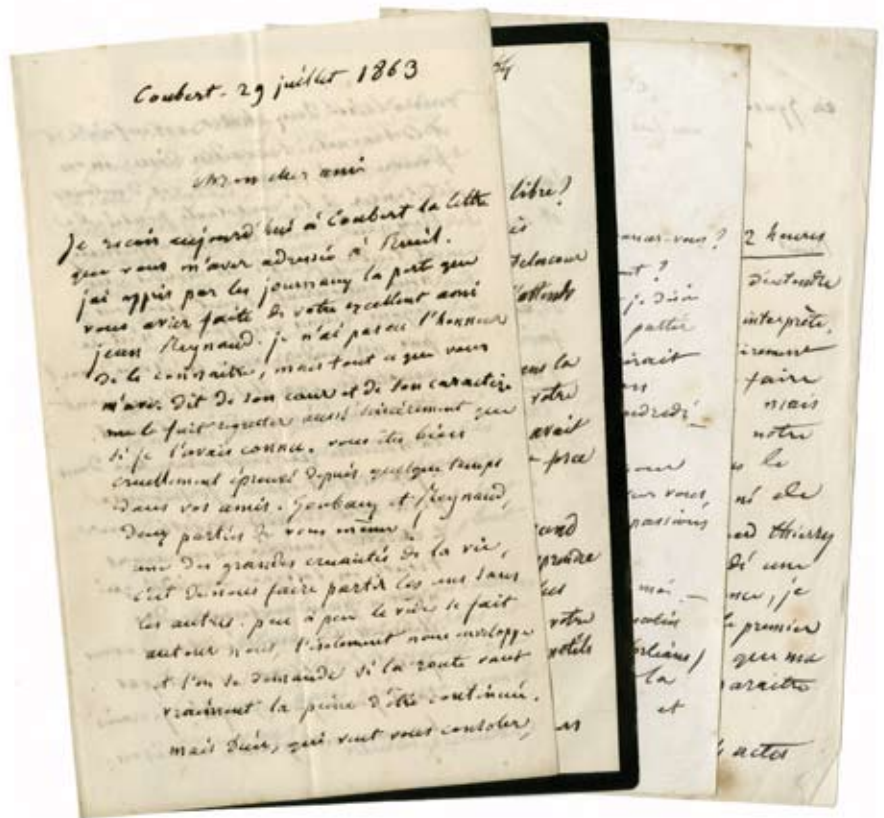 Coubert - 29 juillet 1863
Mon cher ami
Je reçois aujourd'hui à Coubert la lettre
que vous m'avez adressée à Rueil.
j'ai appris par les journaux la perte que
vous aviez faite de votre excellent ami
jean Reynaud. je n'ai pas eu l'honneur
de le connaitre, mais tout ce que vous
m'avez dit de son cœur et de son caractère
me le fait regretter aussi sincèrement que
si je l'avais connu. vous êtes bien
cruellement éprouvé depuis quelque temps
dans vos amis. Goubaux et Reynaud,
deux parties de vous même !
une des grandes cruautés de la vie,
c'est de nous faire partir les uns sans
les autres. peu à peu le vide se fait
autour nous, l'isolement nous enveloppe
et l'on se demande si la route vaut
vraiment la peine d'être continuée.
mais Dieu, qui veut vous consoler,
libre ?
Delacour
ns la
votre
avait
force
and
reprendre
votre
vous ?
t ?
je dois
partie
irait
ndredi -
our
vous,
passionés
moi -
orléans)
la
et
2 heures
d'entendre
interprète,
irement
faire
mais
notre
s le
né de
rd thierry
dé une
nce, je
le premier
que ma
araitre
actes